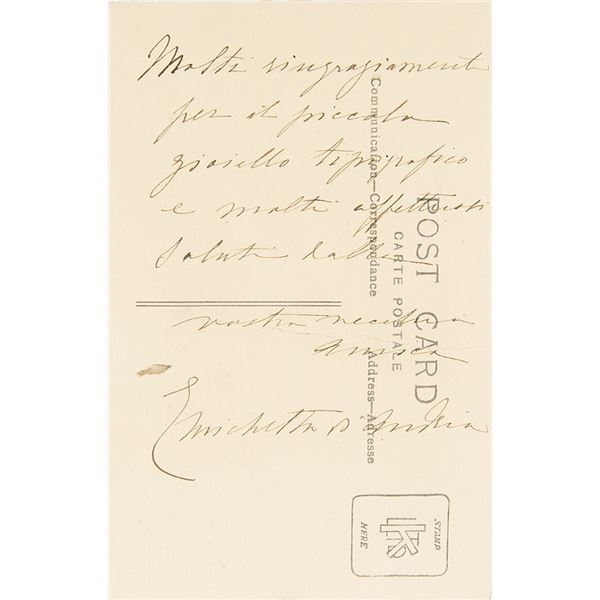 Molti ringraziamenti
per il piccolo
gioiello tipografico
e molti affettuosi
saluti dalla
vostra vecchia
amica
Enrichetta D'Andria
Communication—Correspondance
POST CARD
CARTE POSTALE
Address—Adresse
STAMP
HERE